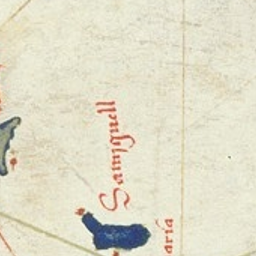 Samjguell
aria